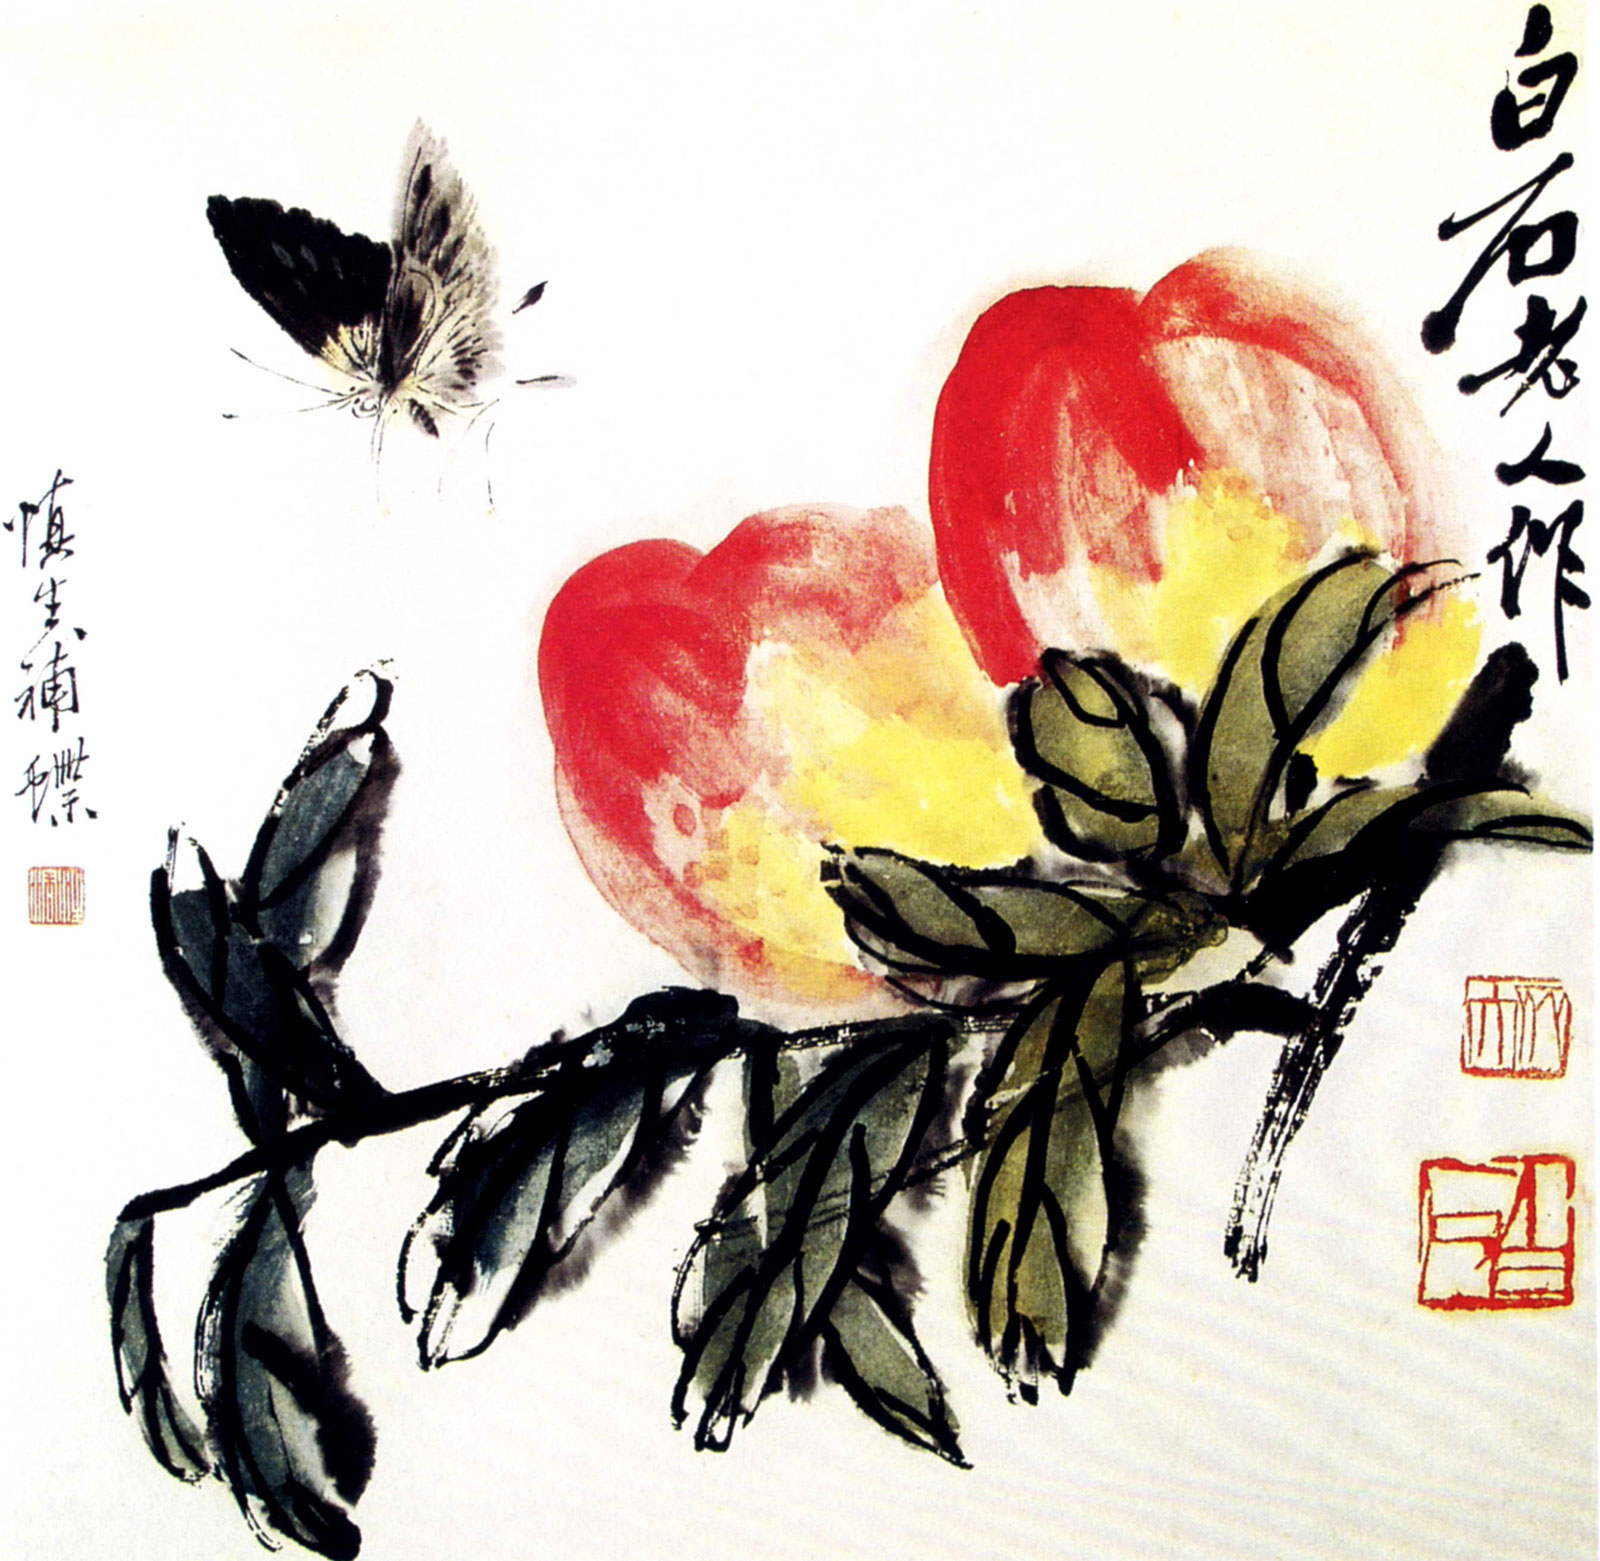 白石老人作
慎生補蝶
齊大